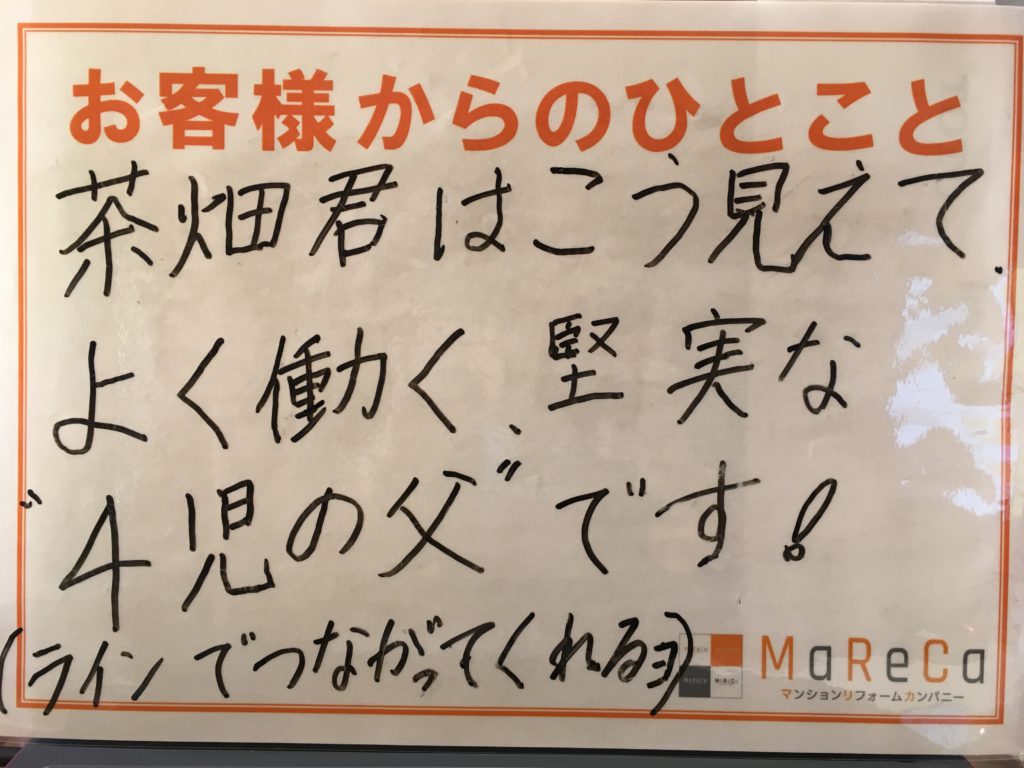 お客様からのひとこと
茶畑君はこう見えて、
よく働く、堅実な
“4児の父”です!
(ラインでつながってくれるヨ)
MaReCa
マンションリフォームカンパニー